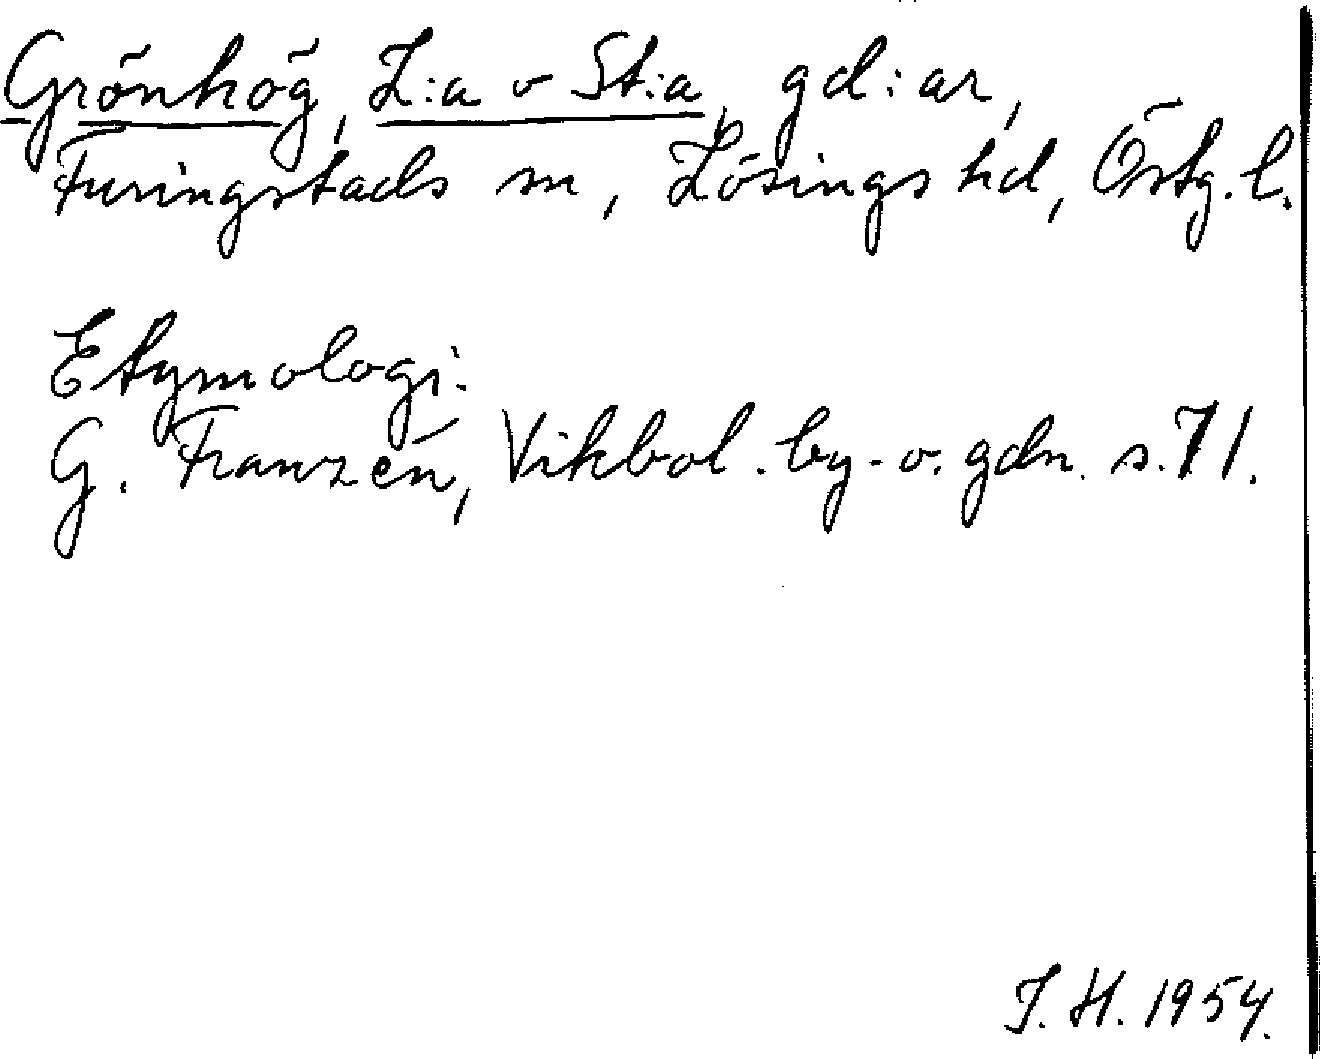 Grönhög, L:a o St:a, gd:ar,
Furingstads sn, Lösings hd, Östg. l.
Etymologi.
G. Franzén, Vikbol. by- o. gdn. s. 71.
J. H. 1954.